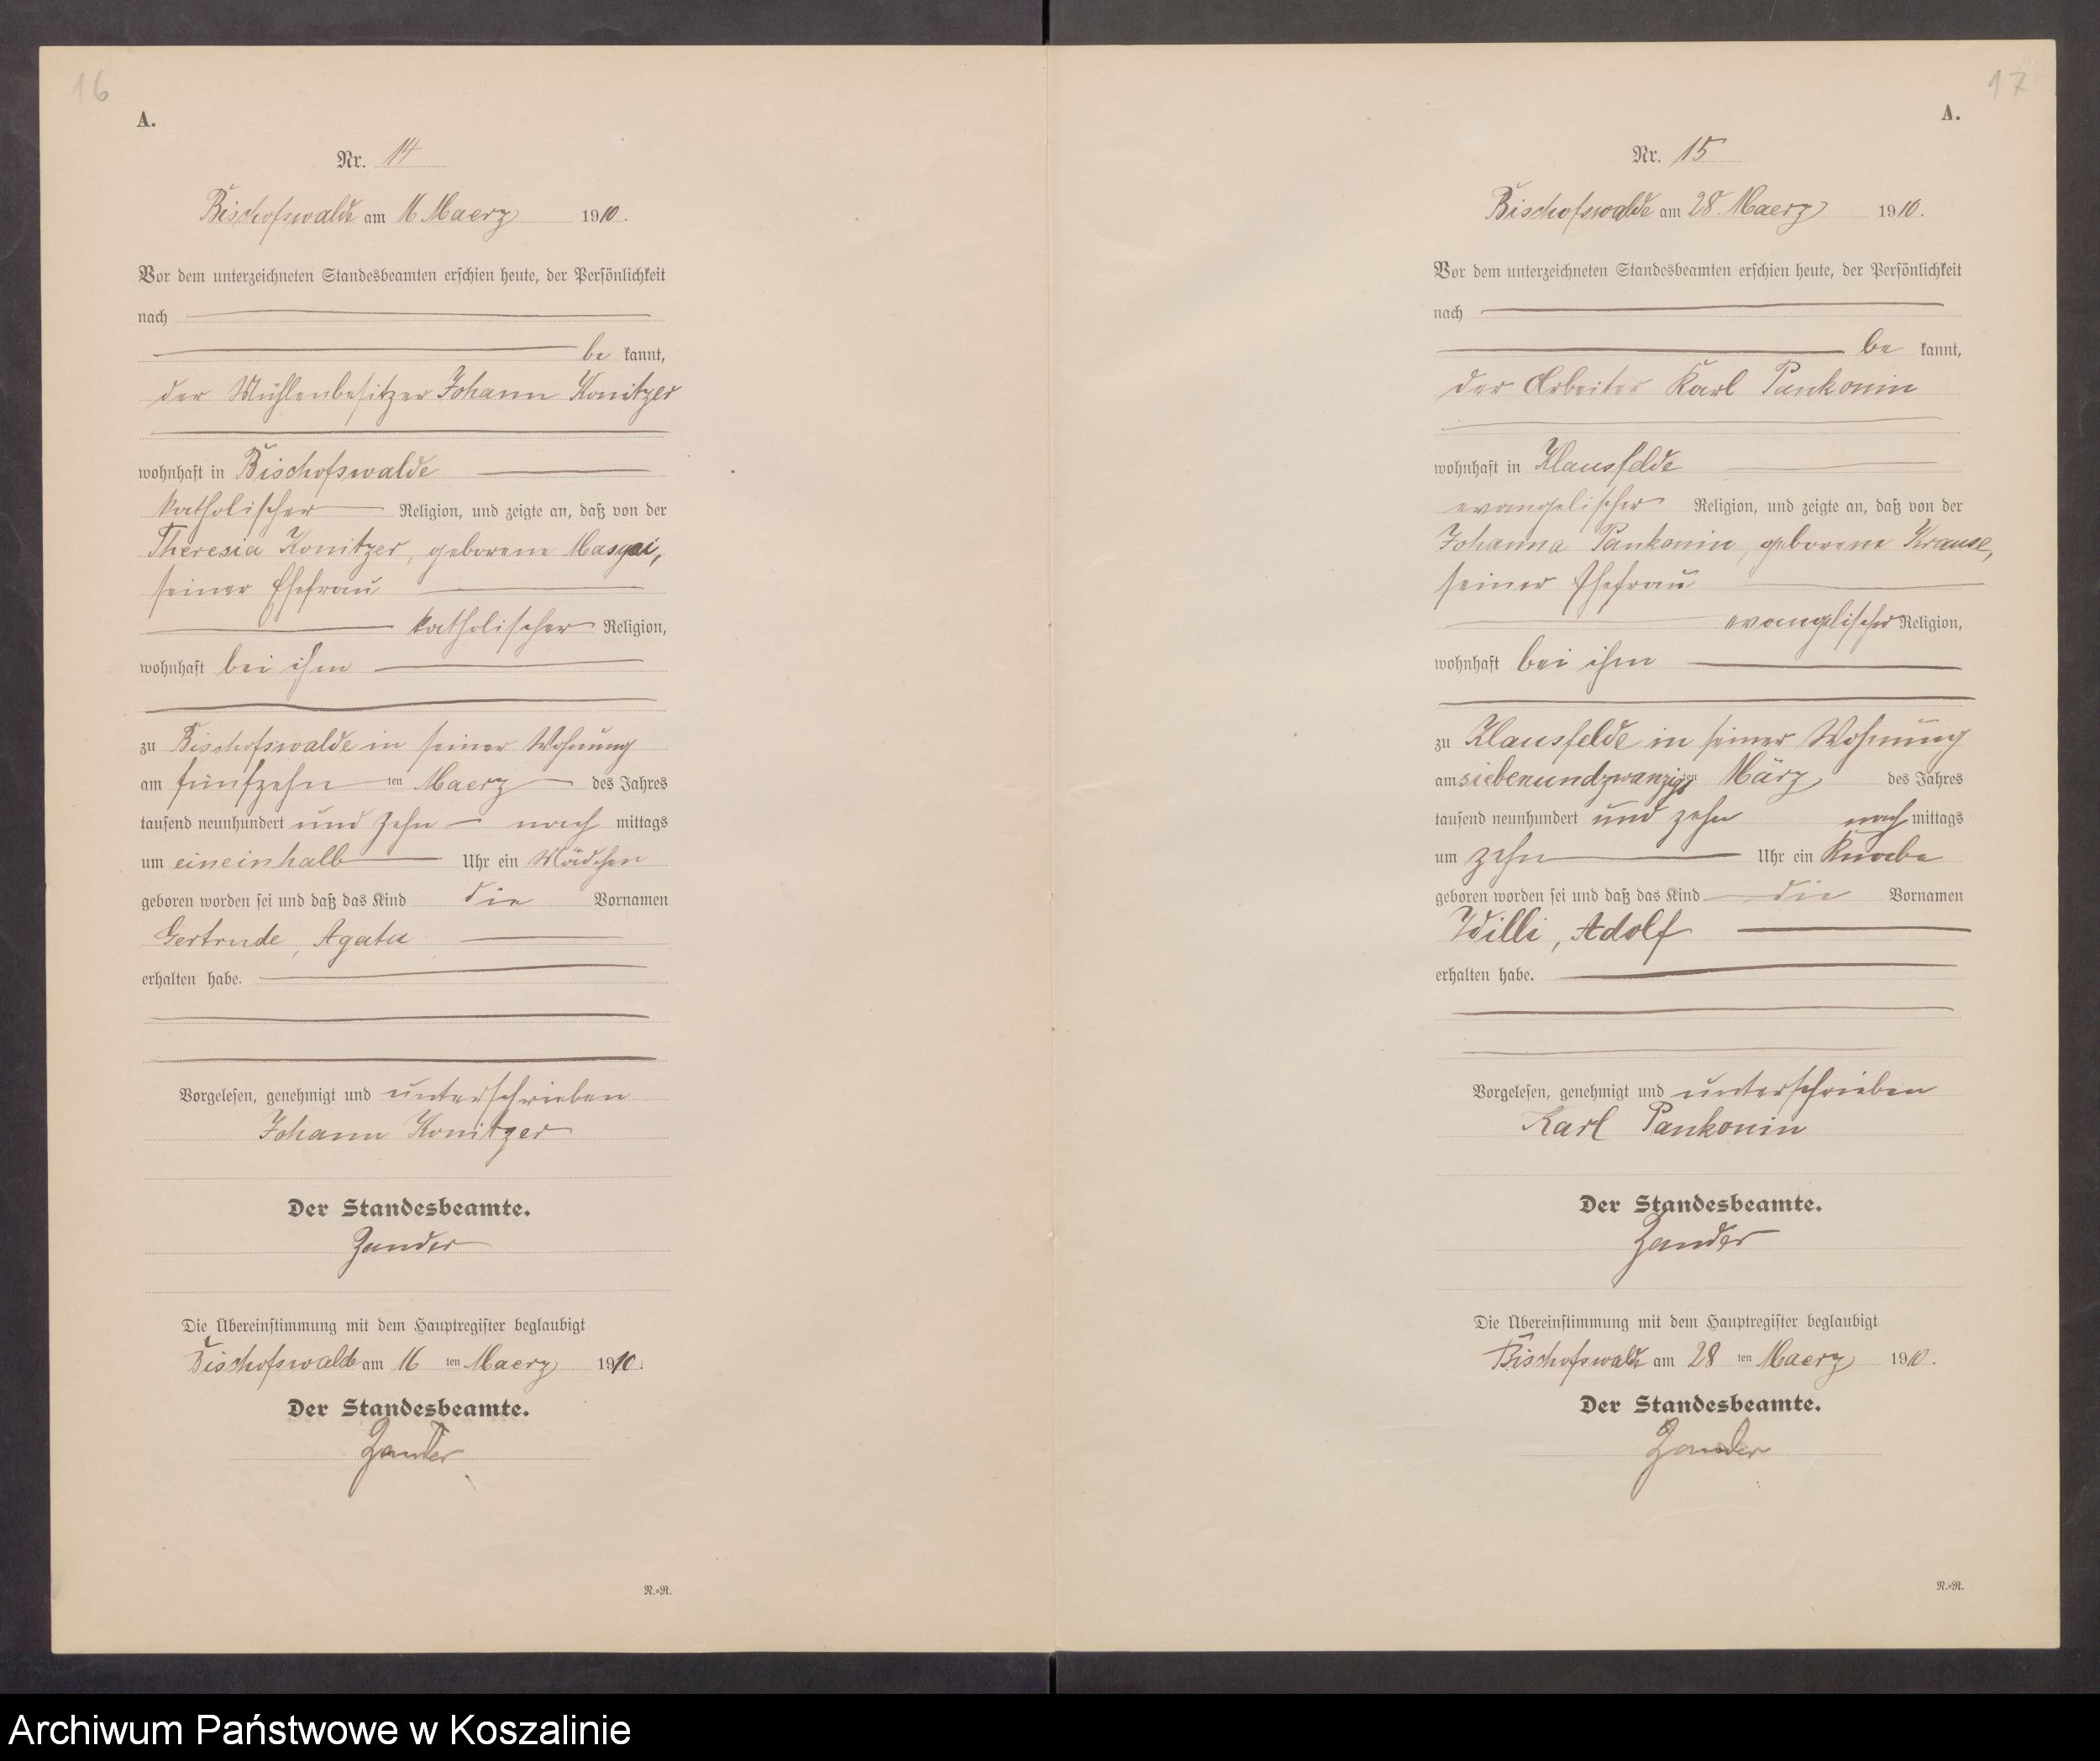 16
A.
Nr. 14
Bischofswalde am 16 Maerz 1910.
Vor dem unterzeichneten Standesbeamten erschien heute, der Persönlichkeit
nach
be kannt,
der Mühlenbesitzer Johann Konitzer
wohnhaft in Bischofswalde
katholischer Religion, und zeigte an, daß von der
Theresia Konitzer, geborene
seiner Ehefrau
katholischer Religion,
wohnhaft bei ihm
zu Bischofswalde in seiner Wohnung
am fünfzehn ten Maerz des Jahres
tausend neunhundert und zehn nach mittags
um eineinhalb Uhr ein Mädchen
geboren worden sei und daß das Kind die Vornamen
Gertrude, Agata
erhalten habe.
Vorgelesen, genehmigt und unterschrieben
Johann Konitzer
Der Standesbeamte.
Zander
Die Übereinstimmung mit dem Hauptregister beglaubigt
Bischofswalde am 16 ten Maerz 1910.
Der Standesbeamte.
Zander
N.=N.
17
A.
Nr. 15
Bischofswalde am 28. Maerz 1910.
Vor dem unterzeichneten Standesbeamten erschien heute, der Persönlichkeit
nach
be kannt,
der Arbeiter Karl Pankonin
wohnhaft in Klausfelde
evangelischer Religion, und zeigte an, daß von der
Johanna Pankonin, geborene Krause,
seiner Ehefrau
evangelischer Religion,
wohnhaft bei ihm
zu Klausfelde in seiner Wohnung
am siebenundzwanzigs ten März des Jahres
tausend neunhundert und zehn nach mittags
um zehn Uhr ein Knabe
geboren worden sei und daß das Kind die Vornamen
Willi, Adolf
erhalten habe.
Vorgelesen, genehmigt und unterschrieben
Karl Pankonin
Der Standesbeamte.
Zander
Die Übereinstimmung mit dem Hauptregister beglaubigt
Bischofswalde am 28 ten Maerz 1910.
Der Standesbeamte.
Zander
N.=N.
Archiwum Państwowe w Koszalinie